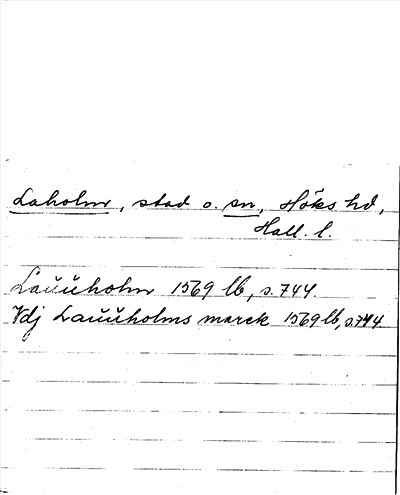 Laholm, stad o. sn, Höks hd,
Hall. l.
Lauŭholm 1569 lb, s. 744.
Vdj Lauŭholms marck 1569 lb, s. 744